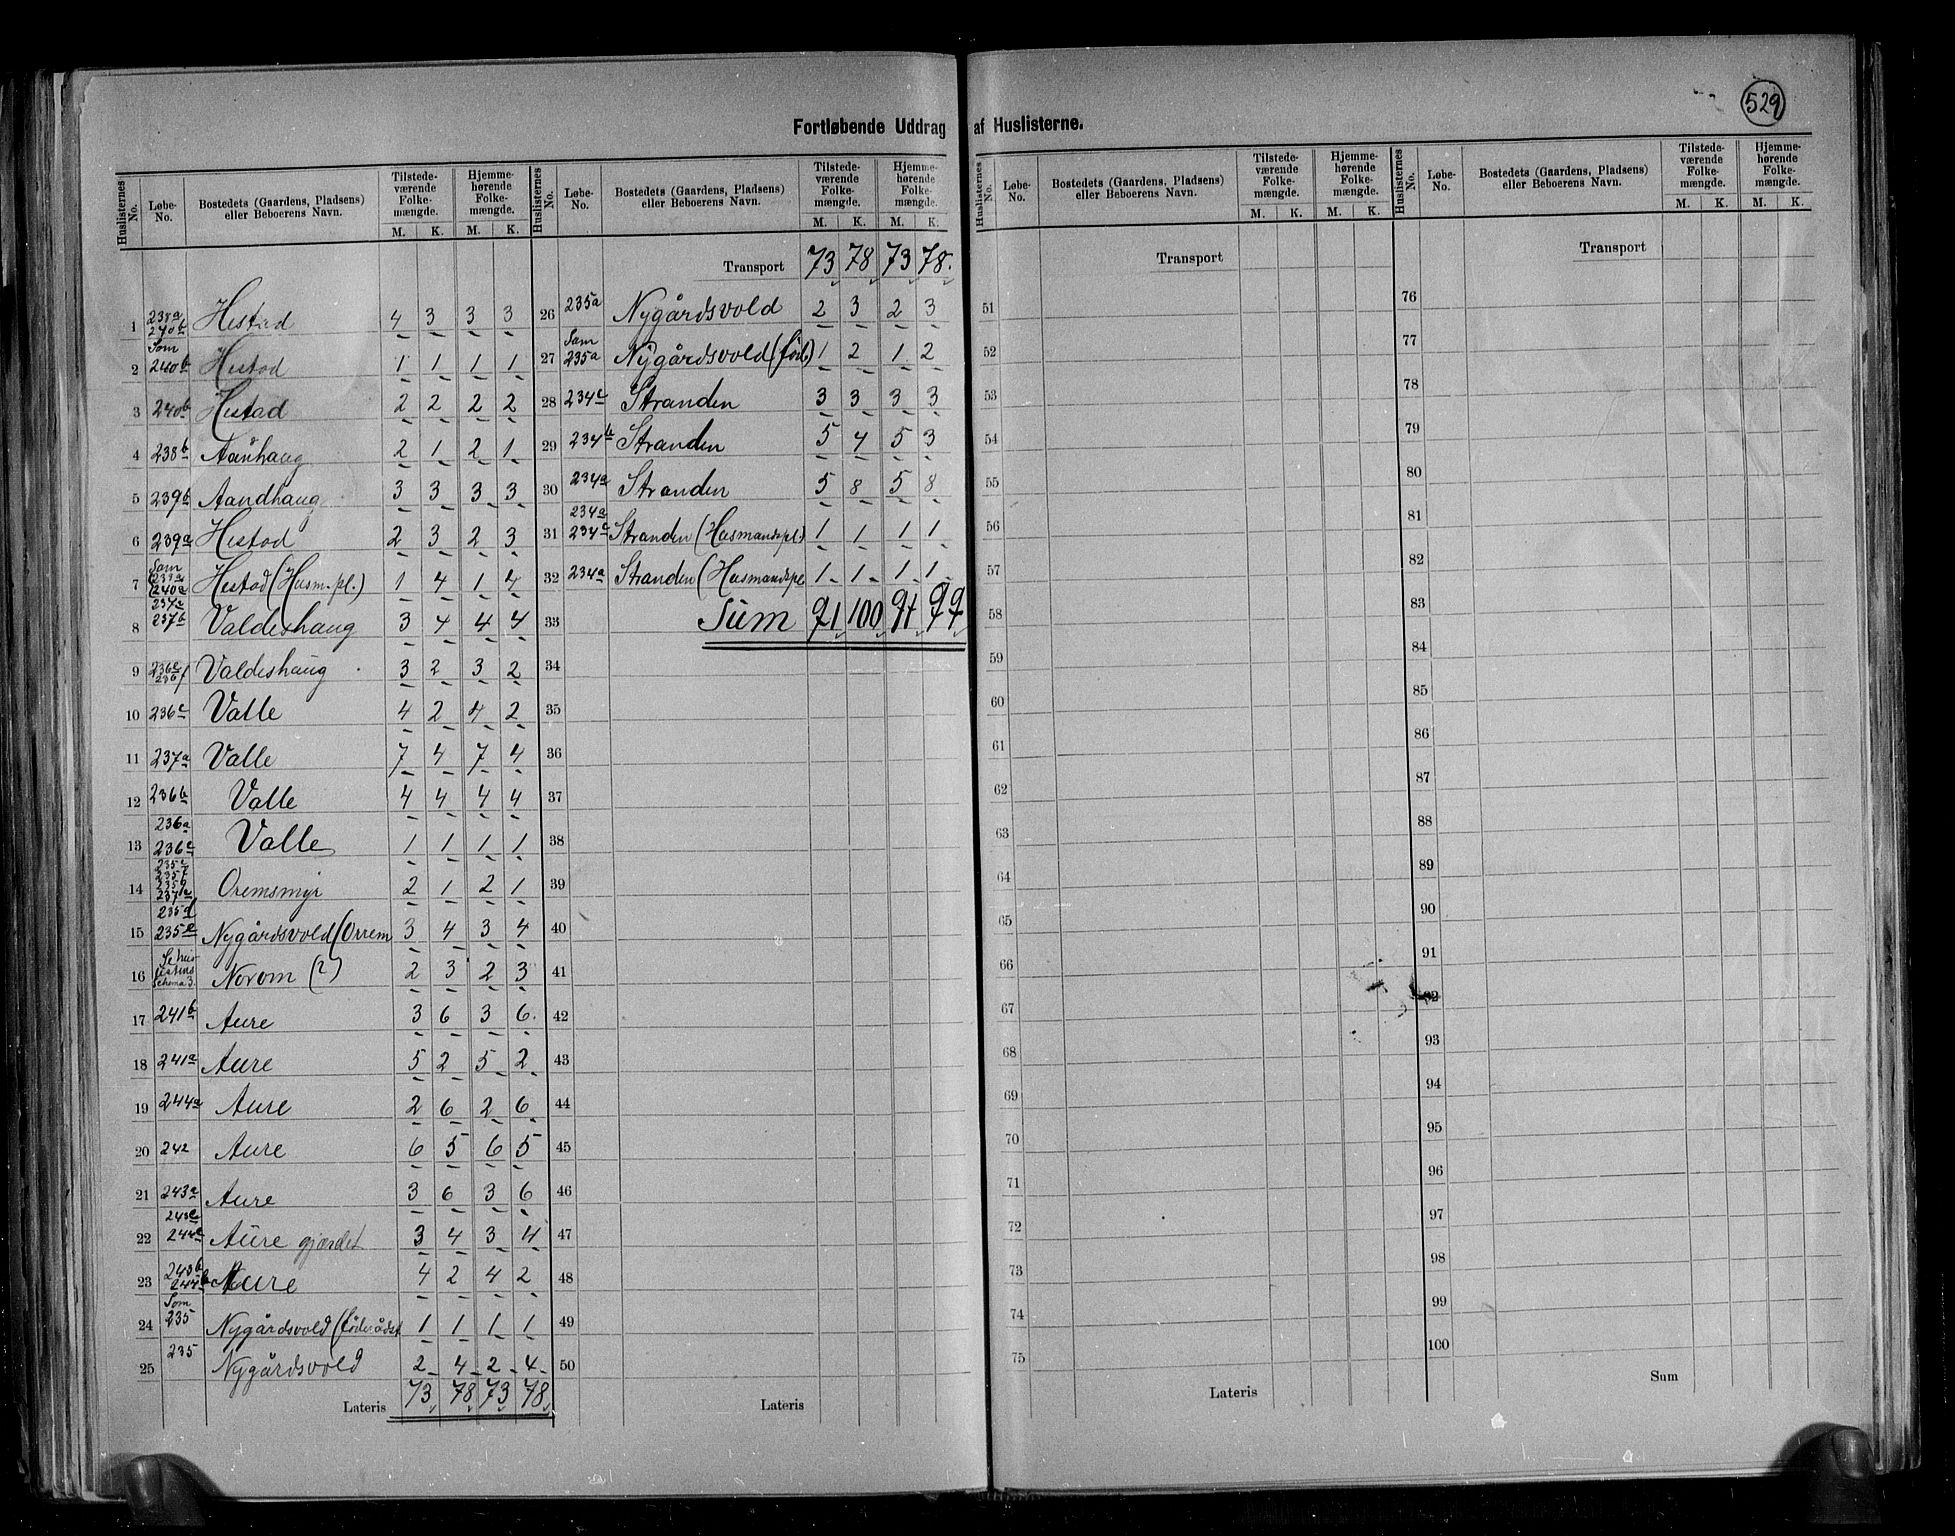 529
Fortløbende Uddrag af Huslisterne.
Huslisternes No. Løbe-No. Bostedets (Gaardens, Pladsens) eller Beboerens Navn. Tilstede-værende Folke-mængde. Hjemme-hørende Folke-mængde.
M. K. M. K.
1 Hestad 4 3 3 3
2 Som 240b Hestad 1 1 1 1
3 240b Hestad 2 2 2 2
4 238b Aanhaug 2 1 2 1
5 239b Aandhaug 3 3 3 3
6 239a Hestad 2 3 2 3
7 Som 239a 240a Hestad (Husm.pl.) 1 4 1 4
8 237a 237b Valdeshaug 3 4 4 4
9 Valdeshaug 3 2 3 2
10 236c Valle 4 2 4 2
11 237a Valle 7 4 7 4
12 236b Valle 4 4 4 4
13 236a 236c Valle 1 1 1 1
14 Oremsmyr 2 1 2 1
15 235d 235e Nygårdsvold (Orrem 3 4 3 4
16 Schema 3. Norom (?) 2 3 2 3
17 241b Aure 3 6 3 6
18 241a Aure 5 2 5 2
19 244a Aure 2 6 2 6
20 242 Aure 6 5 6 5
21 243a Aure 3 6 3 6
22 243c 244c Aure gjærdet 3 4 3 4
23 243b 244b Aure 4 2 4 2
24 Som 235 Nygårdsvold (föderådst 1 1 1 1
25 235 Nygårdsvold 2 4 2 4
Lateris 73 78 73 78
Huslisternes No. Løbe-No. Bostedets (Gaardens, Pladsens) eller Beboerens Navn. Tilstede-værende Folke-mængde. Hjemme-hørende Folke-mængde.
M. K. M. K.
Transport 73 78 73 78.
26 235a Nygårdsvold 2 3 2 3
27 Som 235a Nygårdsvold (föd.) 1 2 1 2
28 234c Stranden 3 3 3 3
29 234b Stranden 5 4 5 3
30 234a Stranden 5 8 5 8
31 234a 234c Stranden (Husmandspl.) 1 1 1 1
32 234a Stranden (Husmandspl 1 1 1 1
33 Sum 91 100 91 99
34
35
36
37
38
39
40
41
42
43
44
45
46
47
48
49
50
Lateris
Huslisternes No. Løbe-No. Bostedets (Gaardens, Pladsens) eller Beboerens Navn. Tilstede-værende Folke-mængde. Hjemme-hørende Folke-mængde.
M. K. M. K.
Transport
51
52
53
54
55
56
57
58
59
60
61
62
63
64
65
66
67
68
69
70
71
72
73
74
75
Lateris
Huslisternes No. Løbe-No. Bostedets (Gaardens, Pladsens) eller Beboerens Navn. Tilstede-værende Folke-mængde. Hjemme-hørende Folke-mængde.
M. K. M. K.
Transport
76
77
78
79
80
81
82
83
84
85
86
87
88
89
90
91
92
93
94
95
96
97
98
99
100
Sum